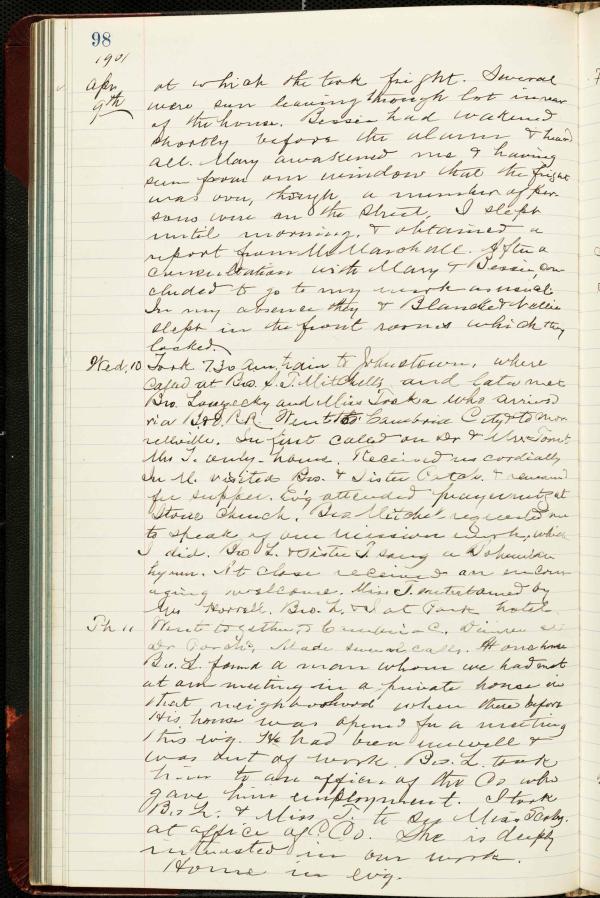 98
1901
Apr. at which she took fright. Several
9th were seen leaving through lot in rear
of the house. Bessie had wakened
shortly before the alarm & heard
all. Mary awakened me & having
seen from our window that the fright
was over, though a number of per
sons were on the street, I slept
until morning, & obtained a
report from Mr Marshall. After a
consultation with Mary & Bessie, con
cluded to go to my work as usual.
In my absence they & Blanche & Nellie
slept in the front rooms which they
locked.
Wed. 10 Took 7.30 am. train to Johnstown, where
called at Bro. S. T. Mitchells, and later met
Bro. and Miss who arrived
via B&O. R.R. Went to Cambria City & to Mor
rellville. In first called on Dr & Mrs
Mrs T. only home. Received us cordially
In M. visited Bro. & Sister & remained
for supper. Ev'g attended prayer mtg at
Stone Church. Bro Mitchel requested me
to speak of our mission work, which
I did. Bro L. & Sister T. sang a Bohemian
hymn. At close received an encour
aging welcome. Miss T. entertained by
Mrs Horrell. Bro. L. & I at Park hotel
Th 11 Went together to Cambria C. Dinner at
Dr Made several calls. At one house
Bro. L. found a man whom we had met
at our meeting in a private house in
that neighborhood when there before
His house was opened for a meeting
this ev'g. He had been unwell &
was out of work. Bro. L. took
him to an officer of the Co who
gave him employment. I took
Bro L. & Miss T. to see Miss
at office of C Co. She is deeply
interested in our work.
Home in ev'g.